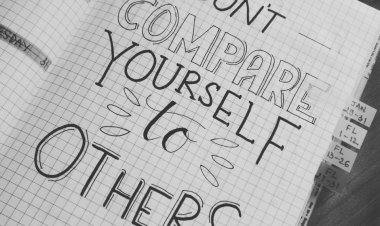 DON'T
COMPARE
YOURSELF
to
OTHERS
ESDAY
31
JAN
FL
1-12
FL
13-26
FL